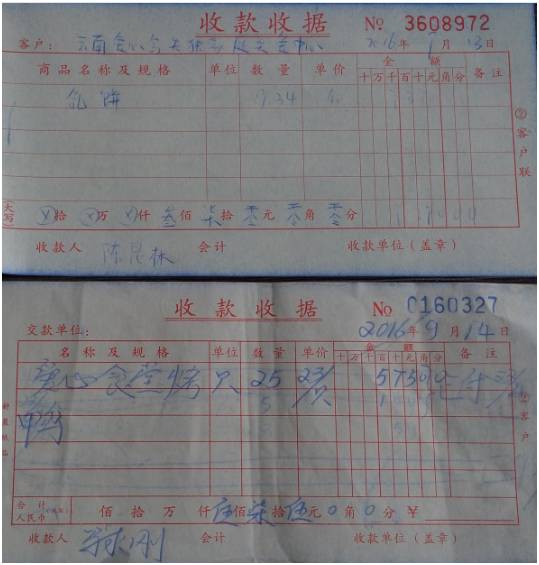 收款收据 № 3608972
客户: 2016年9月13日
商品名称及规格 单位 数量 单价 金额 备注
十万千百十元角分
乳饼
②客户联
(大写) ⊗拾 ⊗万 ⊗仟 叁佰 柒拾 零元 零角 零分
收款人 陈昆林 会计 收款单位(盖章)
收款收据 № 0160327
交款单位: 2016年9月14日
名称及规格 单位 数量 单价 金额 备注
十万千百十元角分
食堂烤 只 25 23/只 57500
鸭
合计人民币 佰拾万仟伍佰柒拾伍元0角0分 ¥
收款人 会计 收款单位(盖章)